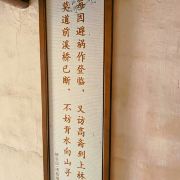 每因避祸作登临，又访高斋到上林
莫道前溪桥已断，不妨背水向山子